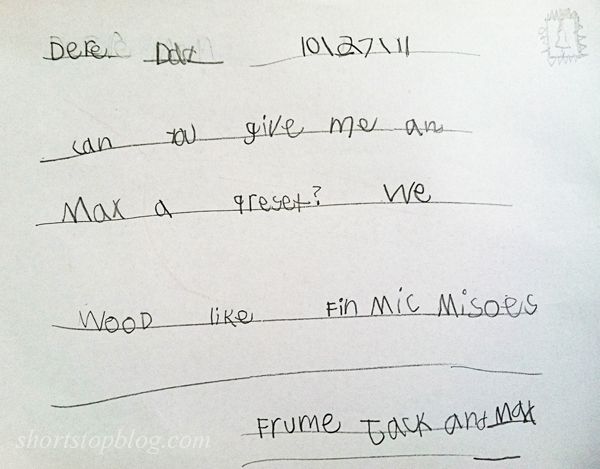 Dere Dad 10\27\11
can you give me an
Max a preset? We
WOOD like Fin Mic Misoes
Frume Jack and Max
shortstopblog.com